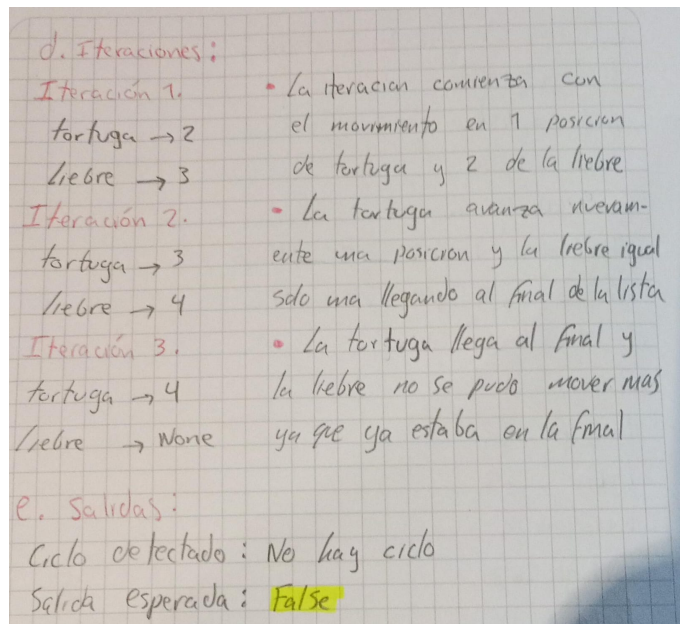 d. Iteraciones:
Iteración 1.
tortuga → 2
liebre → 3
Iteración 2.
tortuga → 3
liebre → 4
Iteración 3.
tortuga → 4
liebre → None
• La iteracion comienza con
el movimiento en 1 posicion
de tortuga y 2 de la liebre
• La tortuga avanza nuevam-
ente una posicion y la liebre igual
solo una llegando al final de la lista
• La tortuga llega al final y
la liebre no se pudo mover mas
ya que ya estaba en la final
e. Salidas:
Ciclo detectado: No hay ciclo
Salida esperada: False